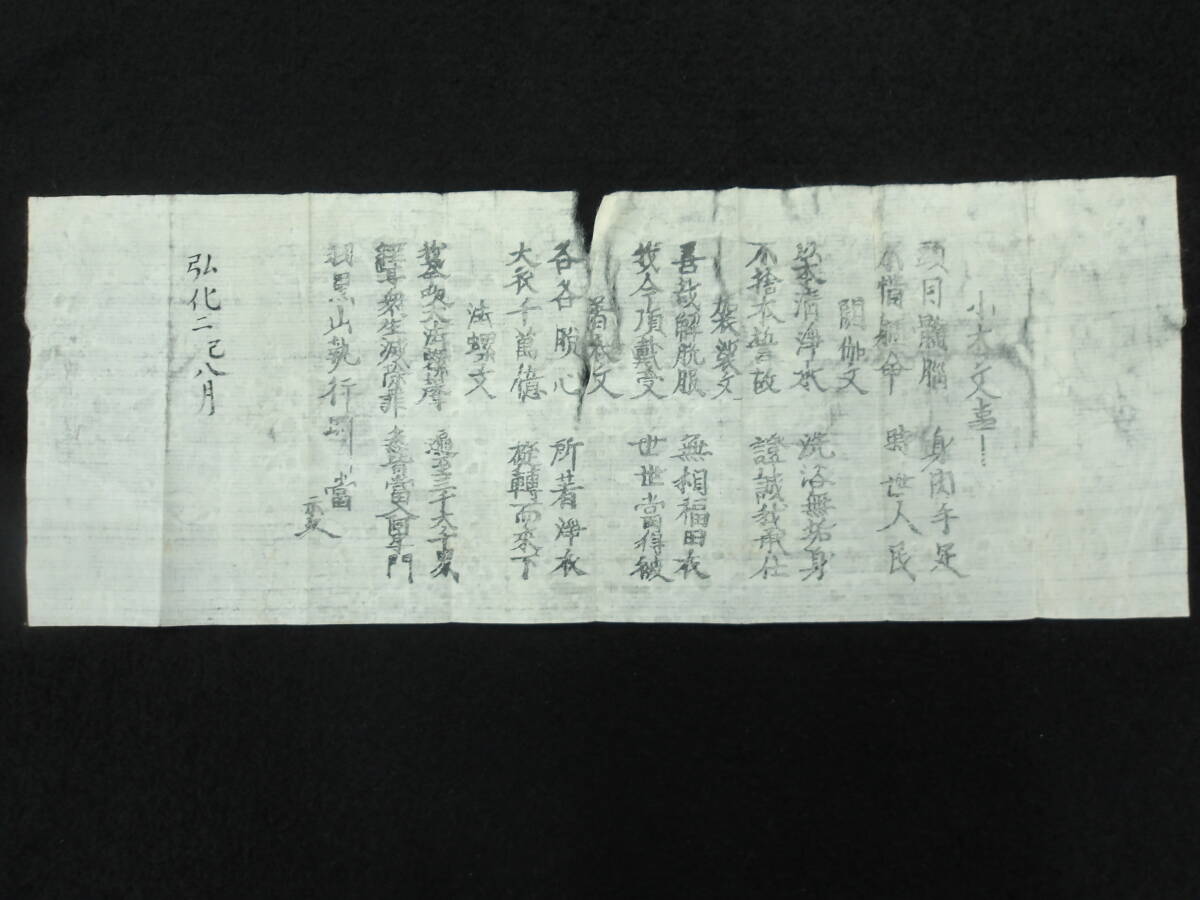 小木文事
頭目髓腦 身肉手足
不惜躯命 時世人民
閼伽文
以本清淨水 洗浴無垢身
不捨本誓故 證誠我承仕
袈裟文
善哉解脱服 無相福田衣
我今頂戴受 世世當得被
着衣文
各各脱心 所著淨衣
大衣千萬億 旋轉而来下
法螺文
吹大法螺聲 遍至三千大千界
衆生滅 罪 悉皆當入 門
羽黒山執行別當
弘化二己八月